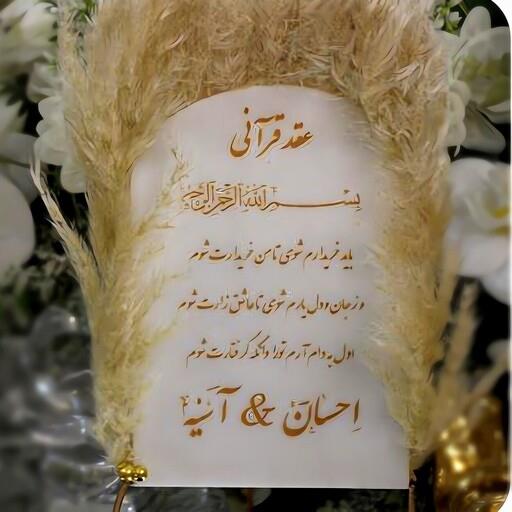 عقد قرآنی
بسم الله الرحمن الرحیم
باید خریدارم شوی تا من خریدارت شوم
وز جان و دل یارم شوی تا عاشق زارت شوم
اول به دام آرم تو را وانگه گرفتارت شوم
احسان & آنیه